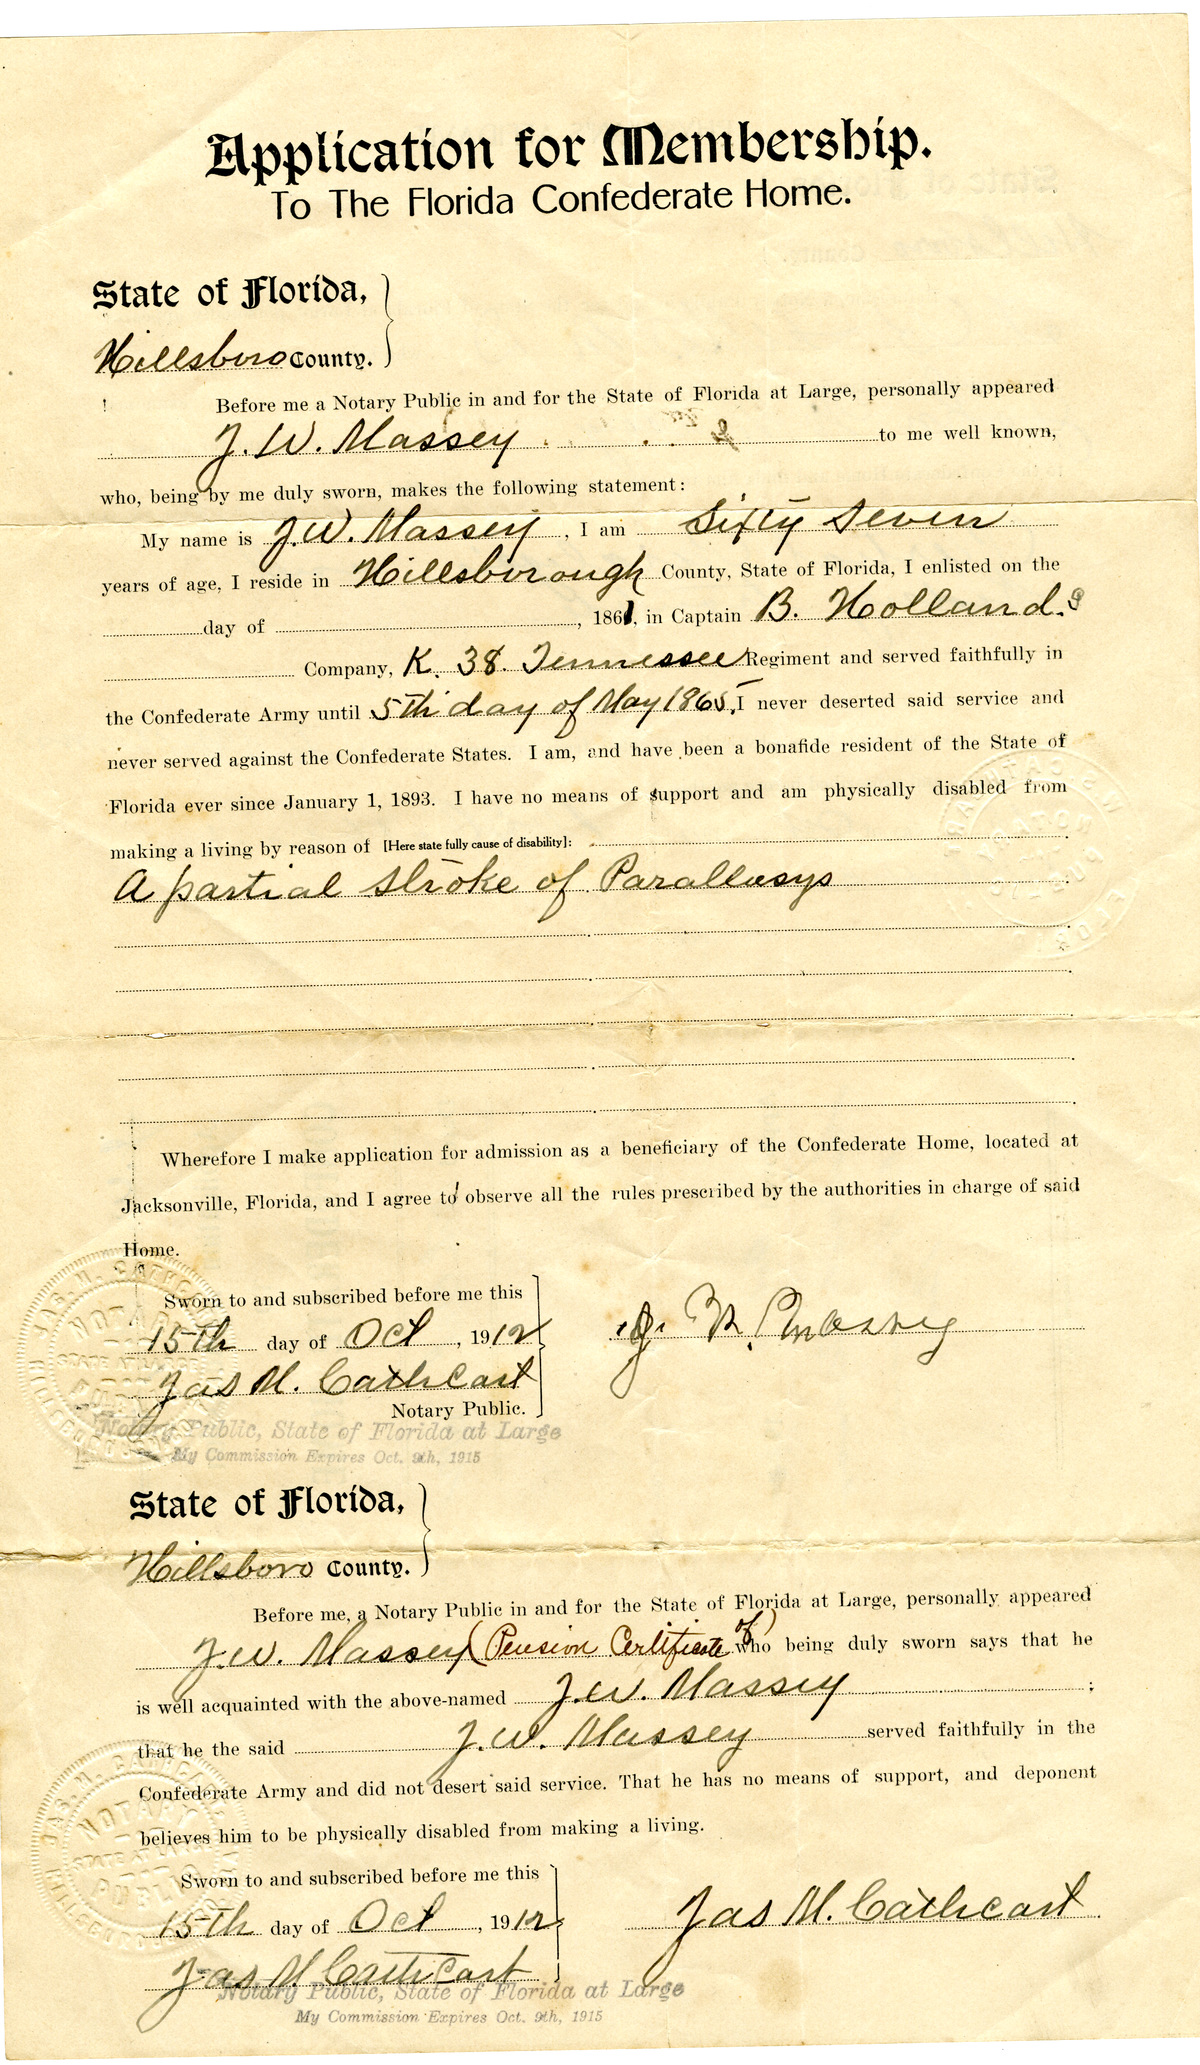 Application for Membership.
To The Florida Confederate Home.
State of Florida,
Hillsboro County.
Before me a Notary Public in and for the State of Florida at Large, personally appeared
J. W. Massey to me well known,
who, being by me duly sworn, makes the following statement:
My name is J. W. Massey, I am Sixty Seven
years of age, I reside in Hillsborough County, State of Florida, I enlisted on the
day of , 1861, in Captain B. Holland.s
Company, K. 38. Tennessee Regiment and served faithfully in
the Confederate Army until 5th day of May 1865. I never deserted said service and
never served against the Confederate States. I am, and have been a bonafide resident of the State of
Florida ever since January 1, 1893. I have no means of support and am physically disabled from
making a living by reason of [Here state fully cause of disability]:
A partial stroke of Parallusys
Wherefore I make application for admission as a beneficiary of the Confederate Home, located at
Jacksonville, Florida, and I agree to observe all the rules prescribed by the authorities in charge of said
Home.
Sworn to and subscribed before me this
15th day of Oct, 1912
Jas M. Cathcart
Notary Public.
Notary Public, State of Florida at Large
My Commission Expires Oct. 9th, 1915
State of Florida,
Hillsboro County.
Before me, a Notary Public in and for the State of Florida at Large, personally appeared
J. W. Massey (Pension Certificate of) who being duly sworn says that he
is well acquainted with the above-named J. W. Massey ;
that he the said J. W. Massey served faithfully in the
Confederate Army and did not desert said service. That he has no means of support, and deponent
believes him to be physically disabled from making a living.
Sworn to and subscribed before me this
15th day of Oct, 1912
Jas M. Cathcart
Jas M Cathcart
Notary Public, State of Florida at Large
My Commission Expires Oct. 9th, 1915